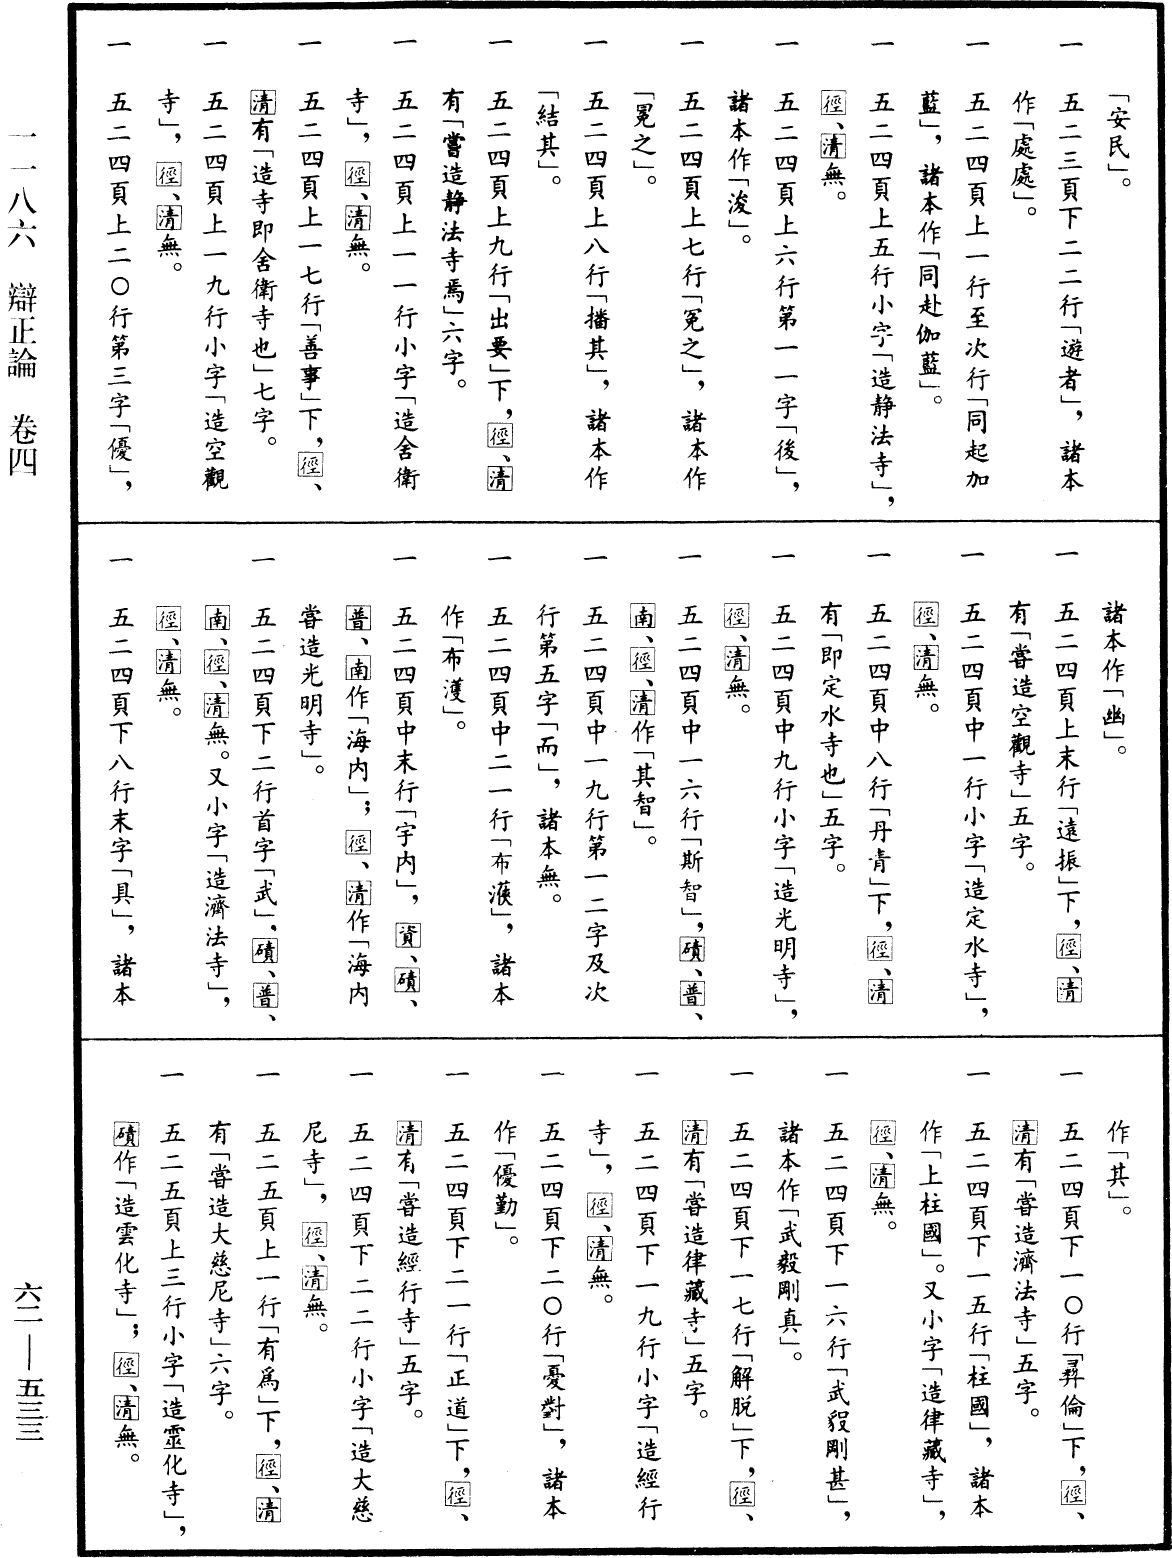 「安民」。
一 五二三頁下二二行「遊者」，諸本
作「處處」。
一 五二四頁上一行至次行「同起加
藍」，諸本作「同赴伽藍」。
一 五二四頁上五行小字「造静法寺」，
徑、清無。
一 五二四頁上六行第一一字「後」，
諸本作「浚」。
一 五二四頁上七行「冤之」，諸本作
「冕之」。
一 五二四頁上八行「播其」，諸本作
「結其」。
一 五二四頁上九行「出要」下，徑、清
有「嘗造静法寺焉」六字。
一 五二四頁上一一行小字「造舍衛
寺」，徑、清無。
一 五二四頁上一七行「善事」下，徑、
清有「造寺即舍衛寺也」七字。
一 五二四頁上一九行小字「造空觀
寺」，徑、清無。
一 五二四頁上二〇行第三字「優」，
諸本作「幽」。
一 五二四頁上末行「遠振」下，徑、清
有「嘗造空觀寺」五字。
一 五二四頁中一行小字「造定水寺」，
徑、清無。
一 五二四頁中八行「丹青」下，徑、清
有「即定水寺也」五字。
一 五二四頁中九行小字「造光明寺」，
徑、清無。
一 五二四頁中一六行「斯智」，磧、普、
南、徑、清作「其智」。
一 五二四頁中一九行第一二字及次
行第五字「而」，諸本無。
一 五二四頁中二一行「布濩」，諸本
作「布濩」。
一 五二四頁中末行「宇内」，資、磧、
普、南作「海内」；徑、清作「海内
嘗造光明寺」。
一 五二四頁下二行首字「武」，磧、普、
南、徑、清無。又小字「造濟法寺」，
徑、清無。
一 五二四頁下八行末字「具」，諸本
作「其」。
一 五二四頁下一〇行「彝倫」下，徑、
清有「嘗造濟法寺」五字。
一 五二四頁下一五行「柱國」，諸本
作「上柱國」。又小字「造律藏寺」，
徑、清無。
一 五二四頁下一六行「武貎剛甚」，
諸本作「武毅剛真」。
一 五二四頁下一七行「解脱」下，徑、
清有「嘗造律藏寺」五字。
一 五二四頁下一九行小字「造經行
寺」，徑、清無。
一 五二四頁下二〇行「憂對」，諸本
作「優勤」。
一 五二四頁下二一行「正道」下，徑、
清有「嘗造經行寺」五字。
一 五二四頁下二二行小字「造大慈
尼寺」，徑、清無。
一 五二五頁上一行「有爲」下，徑、清
有「嘗造大慈尼寺」六字。
一 五二五頁上三行小字「造靈化寺」，
磧作「造雲化寺」；徑、清無。
一一八六 辯正論 卷四
六二—五三三